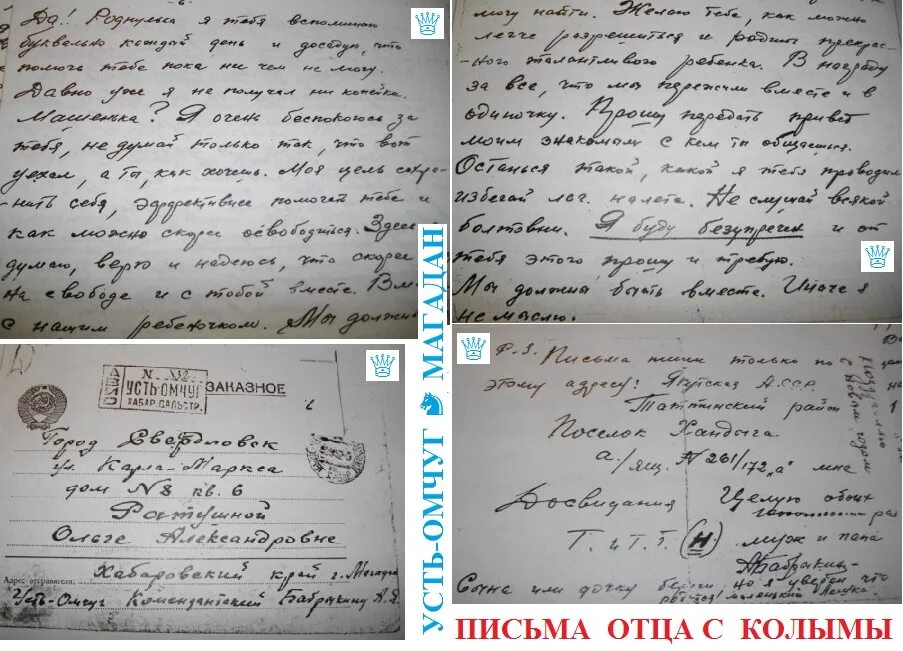 Да! Роднулька я тебя вспоминаю
буквально каждый день и досадую, что
помочь тебе пока ни чем не могу.
Давно уже я не получал ни копейки.
Машенька? Я очень беспокоюсь за
тебя, не думай только так, что вот
уехал, а ты, как хочешь. Моя цель сохра-
-нить себя, эффективнее помогать тебе и
как можно скорее освободиться. Здесь
думаю, верю и надеюсь, что скорее
на свободе и с тобой вместе. Вм
с нашим ребеночком. Мы должны
могу найти. Желаю тебе, как можно
легче разрешиться и родить прекрас-
ного талантливого ребенка. В награду
за все, что мы пережили вместе и в
одиночку. Прошу передать привет
моим знакомым с кем ты общаешься.
Останься такой, какой я тебя проводил
избегай лег. налета. Не слушай всякой
болтовни. Я буду безупречен и от
тебя этого прошу и требую.
Мы должны быть вместе. Иначе я
не мыслю.
АВИА
N. 832
УСТЬ-ОМЧУГ
ХАБАР. ДАЛЬСТР.
ЗАКАЗНОЕ
Город Свердловск
ул. Карла-Маркса
дом N8 кв. 6
Ратушной
Ольге Александровне
Адрес отправителя:
Хабаровский край г. Магадан
Усть-Омчуг Комендантский Бабрыкину А. Я.
P.S. Письма пиши только по
этому адресу: Якутская А.ССР.
Таттинский район
Поселок Хандыга
а./ящ. N 261/172 „а" мне
Досвидания Целую обоих
Т. и Т. Т. (Н). муж и папа
Абабрыкин-
Сына или дочку береги. но я уверен что
родится! маленький
УСТЬ-ОМЧУГ МАГАДАН
ПИСЬМА ОТЦА С КОЛЫМЫ